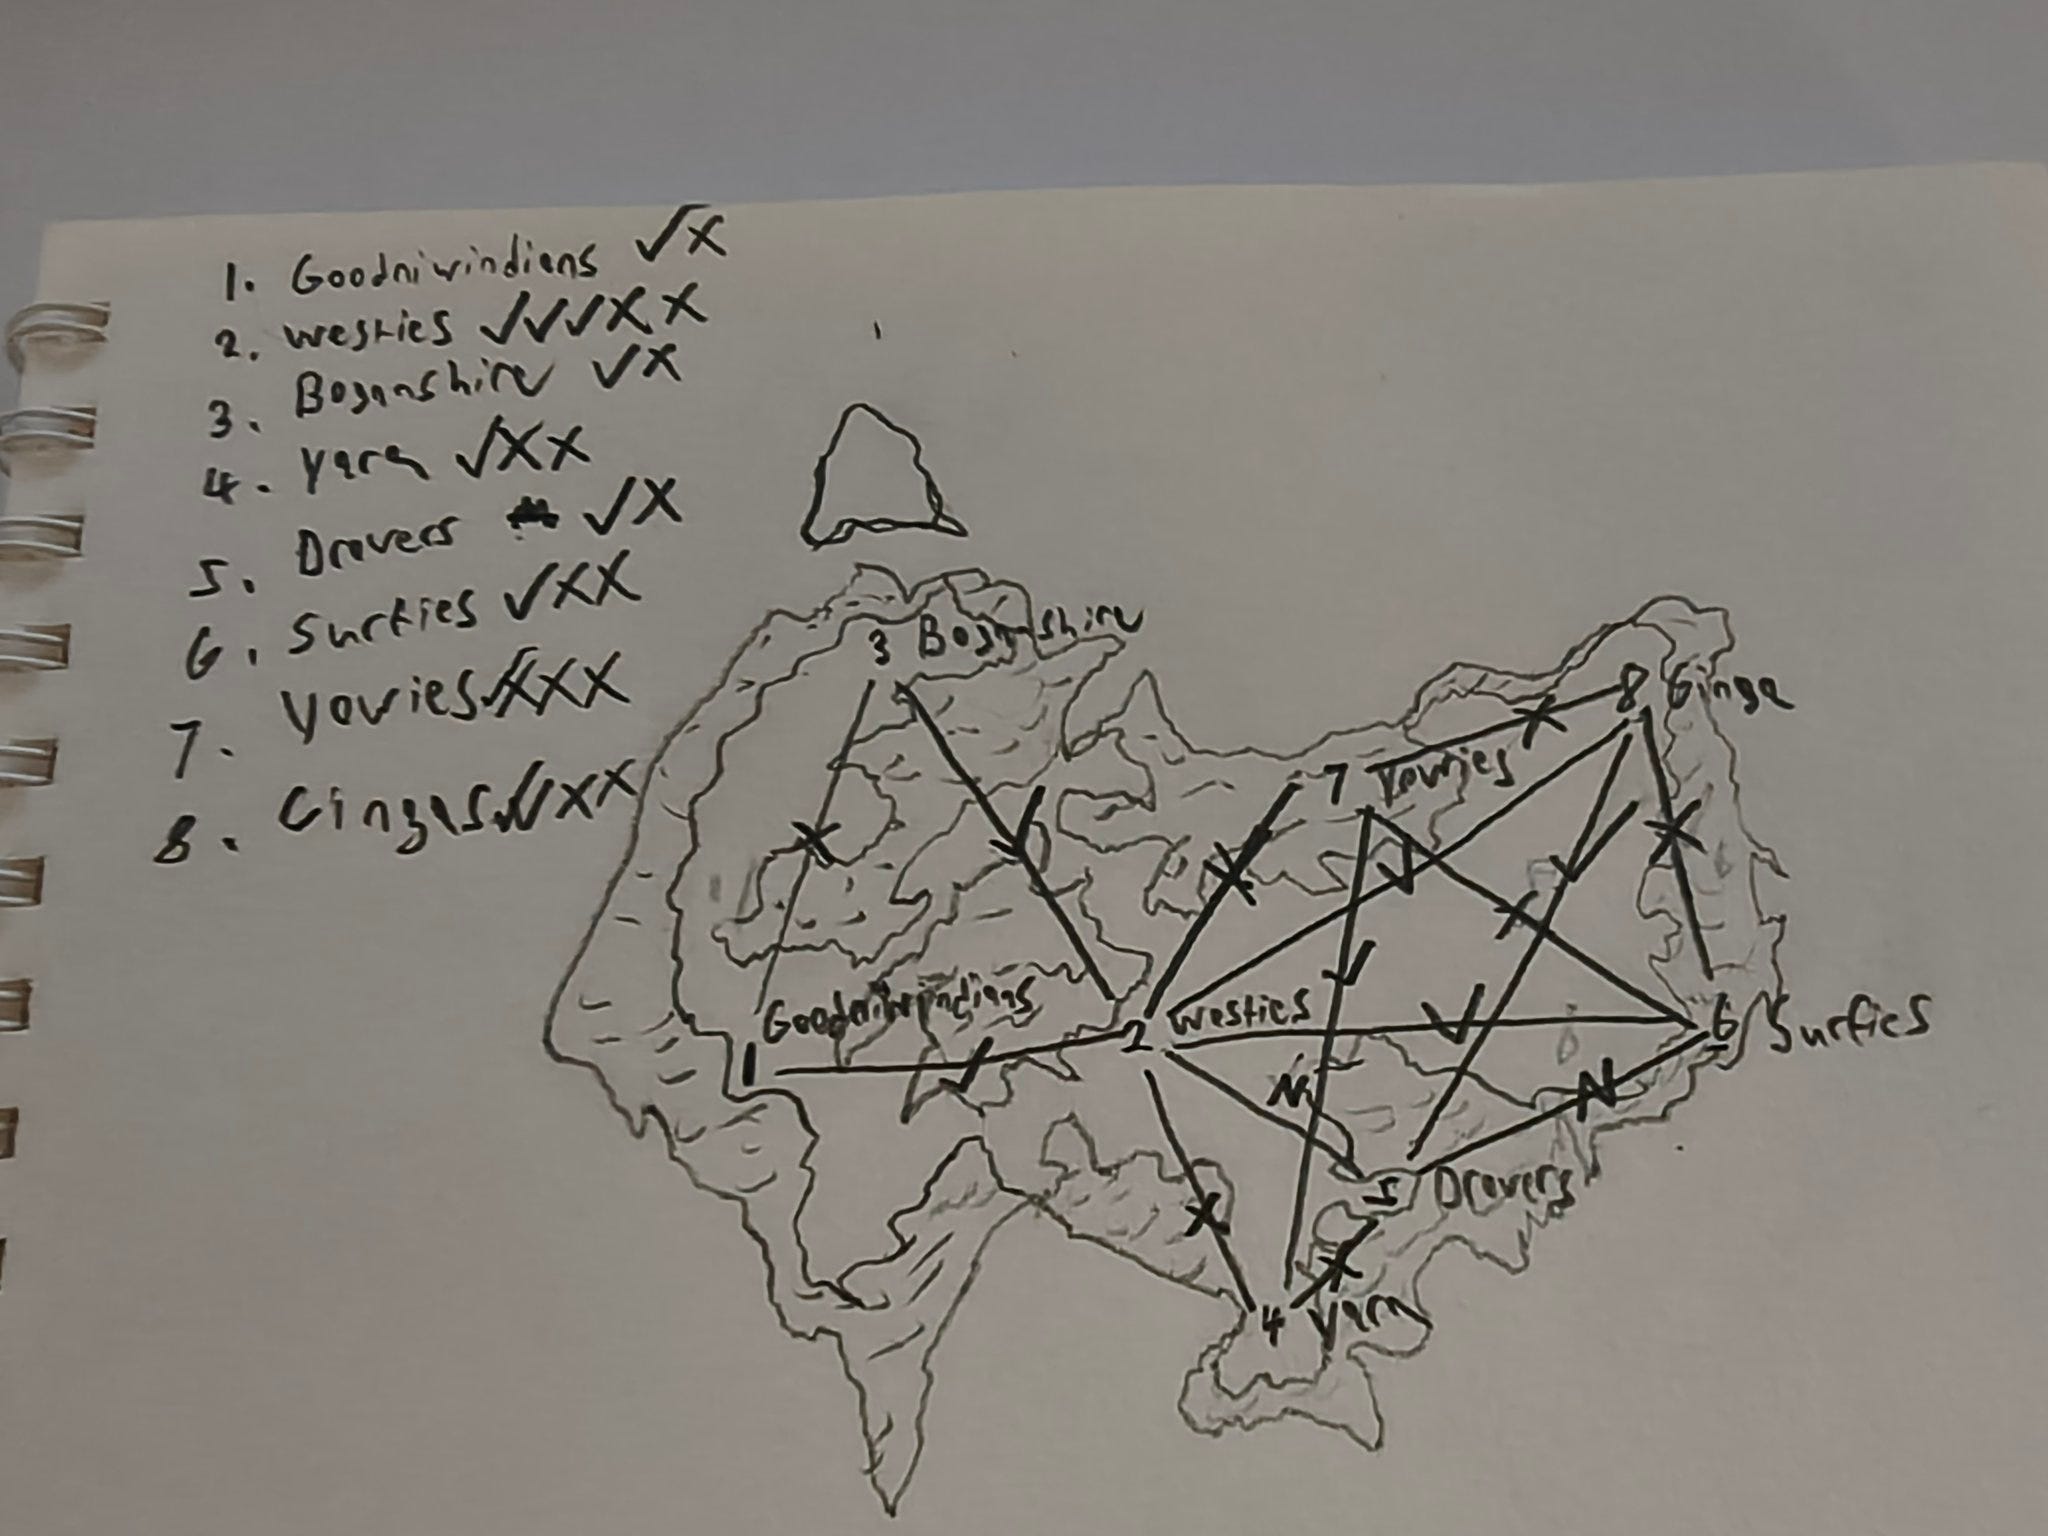 1. Goodniwindians √X
2. Westies √√√XX
3. Boganshire √X
4. Yara √XX
5. Drovers √X
6. Surfies √XX
7. Yowies √XXX
8. Gingas √√XX
3 Boganshire
8 Ginga
X
7 Yowies
X
√
X
√
√
X
X
√
√
Goodniwindians
2 Westies
√
6 Surfies
1
√
N
N
5 Drovers
X
X
4 Yara